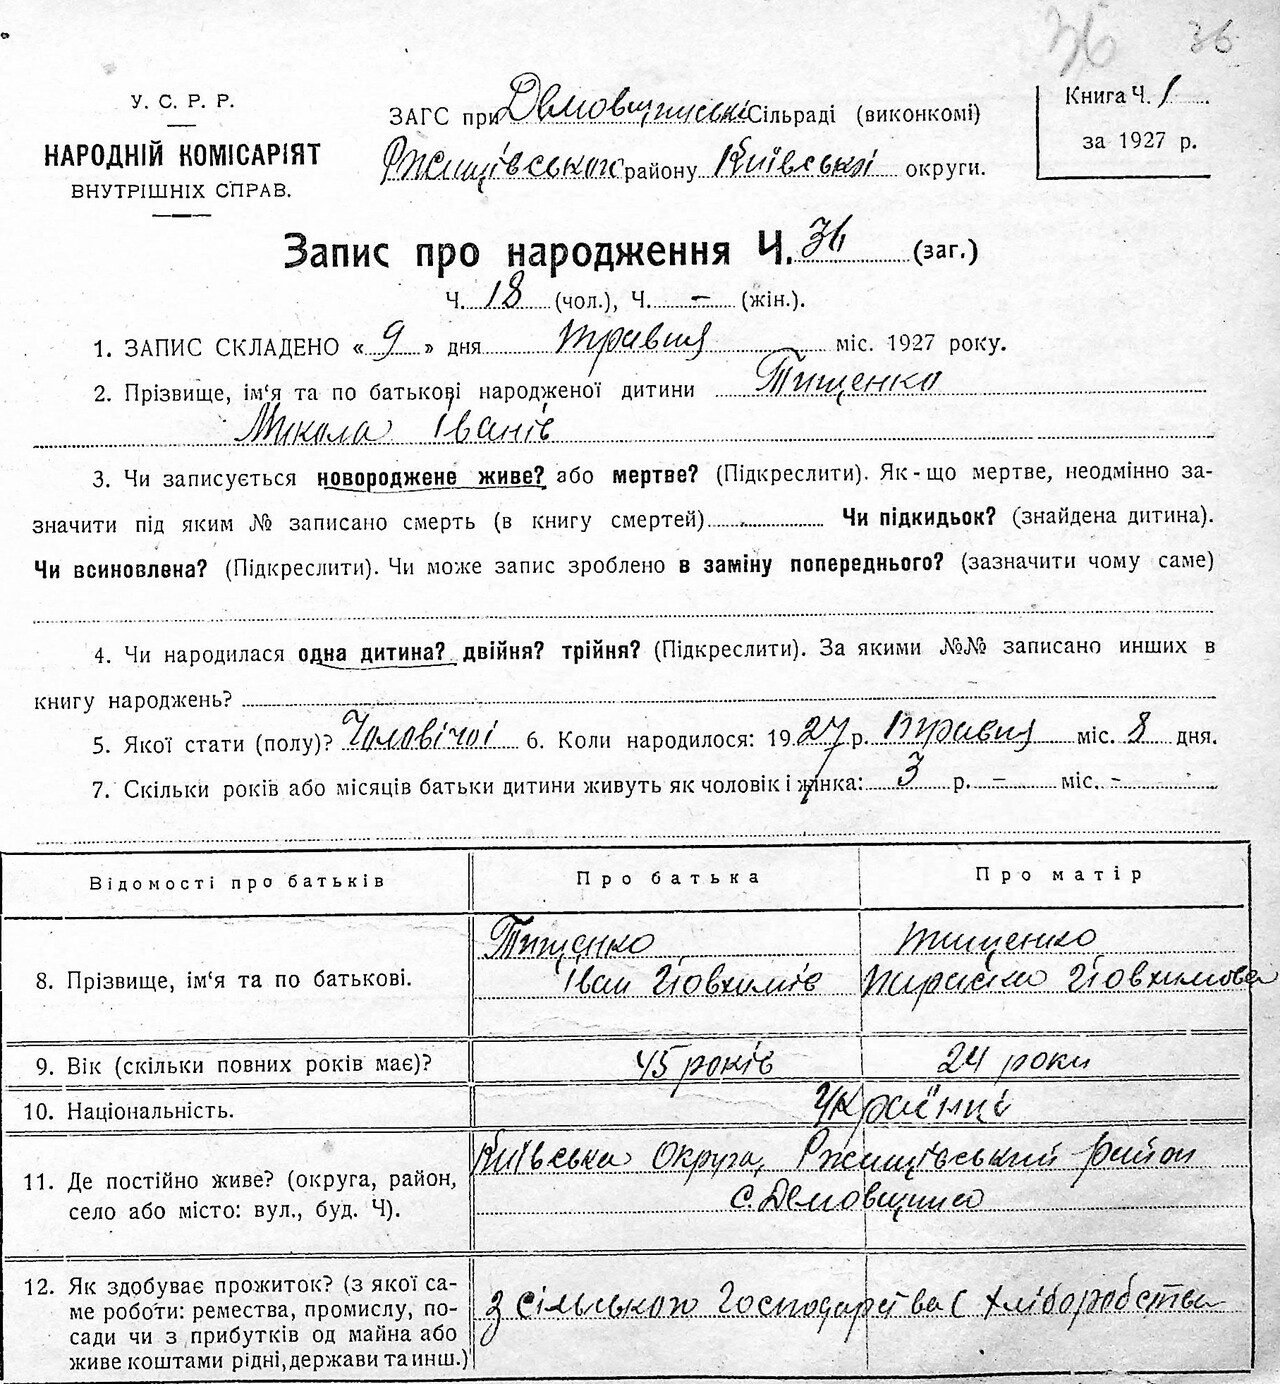 36 36
У. С. Р. Р.
НАРОДНІЙ КОМІСАРІЯТ
ВНУТРІШНІХ СПРАВ.
ЗАГС при Демовщинській Сільраді (виконкомі)
Ржищівського району Київської округи.
Книга Ч. 1
за 1927 р.
Запис про народження Ч. 36 (заг.)
Ч. 18 (чол.), Ч. – (жін.).
1. ЗАПИС СКЛАДЕНО « 9 » дня травня міс. 1927 року.
2. Прізвище, ім'я та по батькові народженої дитини Тищенко
Микола Іванів
3. Чи записується новороджене живе? або мертве? (Підкреслити). Як-що мертве, неодмінно за-
значити під яким № записано смерть (в книгу смертей) Чи підкидьок? (знайдена дитина).
Чи всиновлена? (Підкреслити). Чи може запис зроблено в заміну попереднього? (зазначити чому саме)
4. Чи народилася одна дитина? двійня? трійня? (Підкреслити). За якими №№ записано инших в
книгу народжень?
5. Якої стати (полу)? Чоловічої 6. Коли народилося: 1927 р. Травня міс. 8 дня.
7. Скільки років або місяців батьки дитини живуть як чоловік і жінка: 3 р. – міс. –
Відомості про батьків Про батька Про матір
8. Прізвище, ім'я та по батькові. Тищенко Іван Йовхимів Тищенко Йовхимова
9. Вік (скільки повних років має)? 45 років 24 роки
10. Національність. Українці
11. Де постійно живе? (округа, район,
село або місто: вул., буд. Ч). Київська Округа, Ржищівський район
с. Демовщина
12. Як здобуває прожиток? (з якої са-
ме роботи: ремества, промислу, по-
сади чи з прибутків од майна або
живе коштами рідні, держави та инш.) З сільського Господарства ( хліборобства